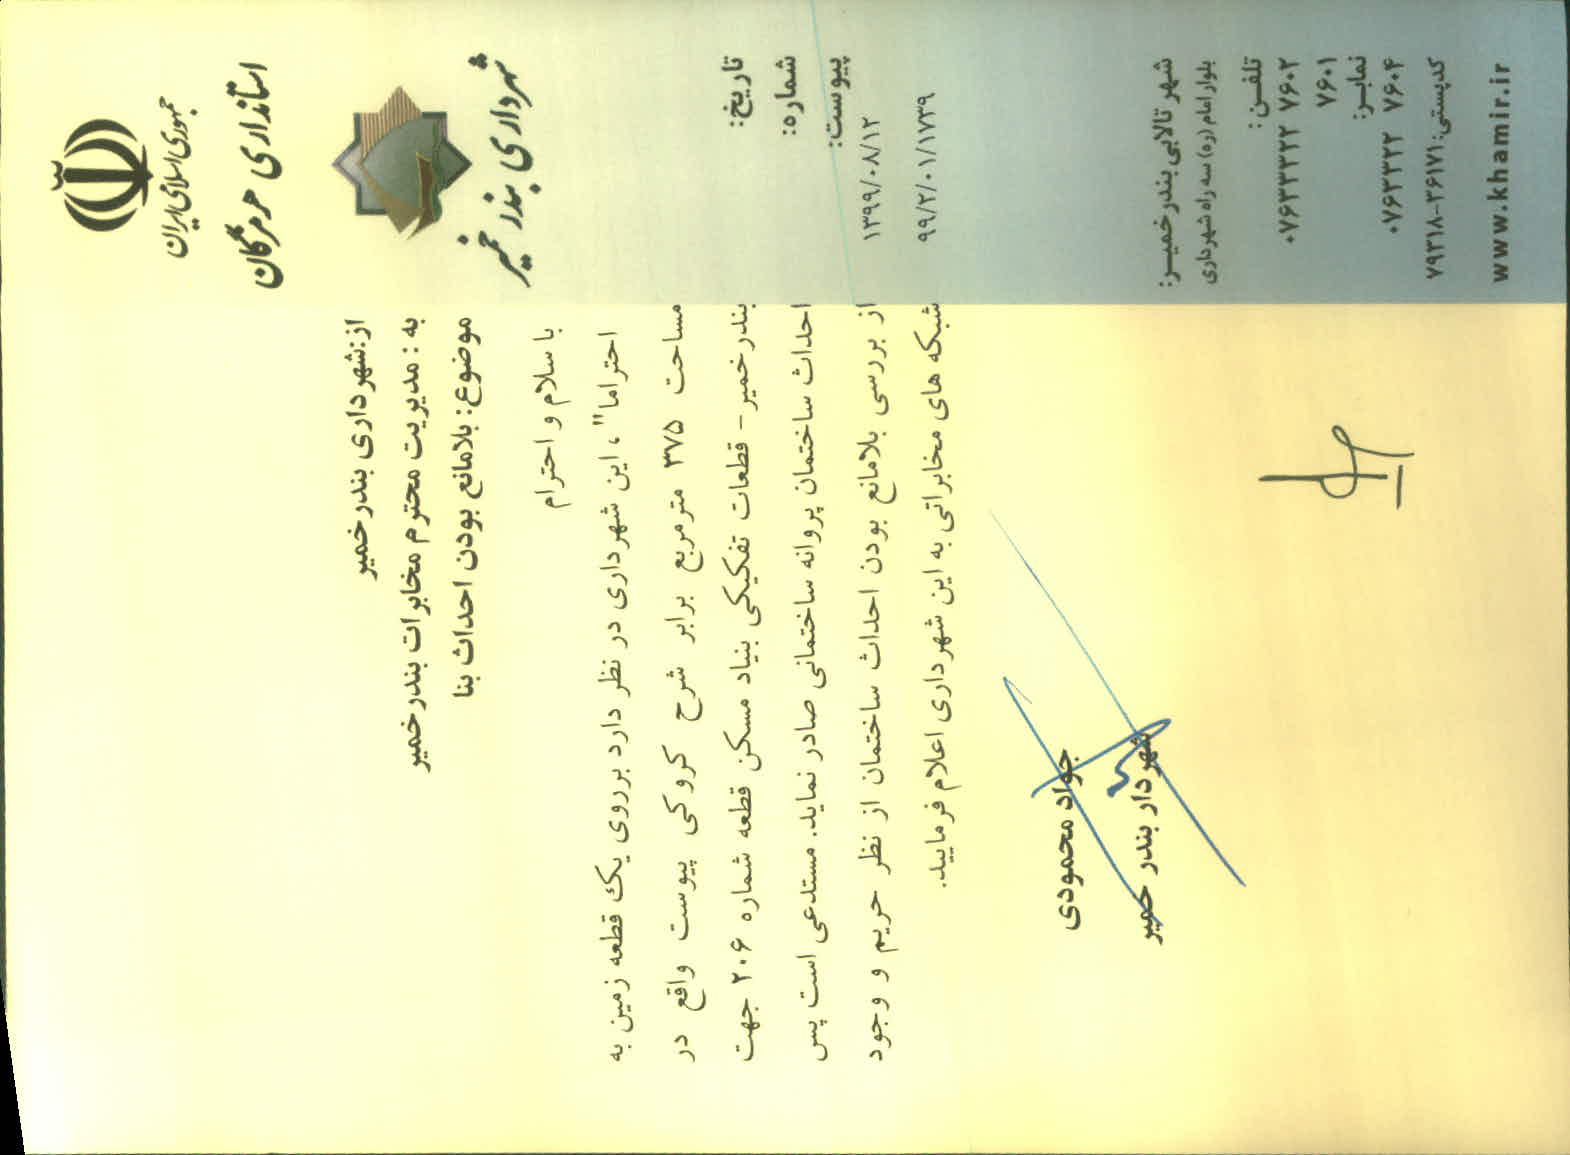 جمهوری اسلامی ایران
استانداری هرمزگان
شهرداری بندر خمیر
تاریخ:
شماره:
پیوست:
۱۳۹۹/۰۸/۱۲
۹۹/۲/۰۱/۱۷۳۹
شهر تالابی بندر خمیر:
بلوار امام (ره) سه راه شهرداری
تلفن:
۰۷۶۳۳۲۲ ۷۶۰۲
۷۶۰۱
نمابر:
۰۷۶۳۳۲۲ ۷۶۰۴
کدپستی: ۷۹۳۱۸-۳۶۱۷۱
www.khamir.ir
از: شهرداری بندر خمیر
به : مدیریت محترم مخابرات بندر خمیر
موضوع: بلامانع بودن احداث بنا
با سلام و احترام
احتراما"، این شهرداری در نظر دارد برروی یک قطعه زمین به
مساحت ۳۷۵ مترمربع برابر شرح کروکی پیوست واقع در
بندر خمیر - قطعات تفکیکی بنیاد مسکن قطعه شماره ۲۰۶ جهت
احداث ساختمان پروانه ساختمانی صادر نماید. مستدعی است پس
از بررسی بلامانع بودن احداث ساختمان از نظر حریم و وجود
شبکه های مخابراتی به این شهرداری اعلام فرمایید.
جواد محمودی
شهردار بندر خمیر